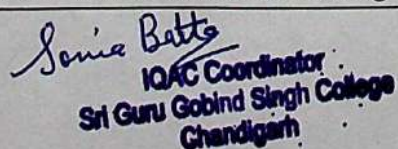 Sonia Batta
IQAC Coordinator
Sri Guru Gobind Singh College
Chandigarh